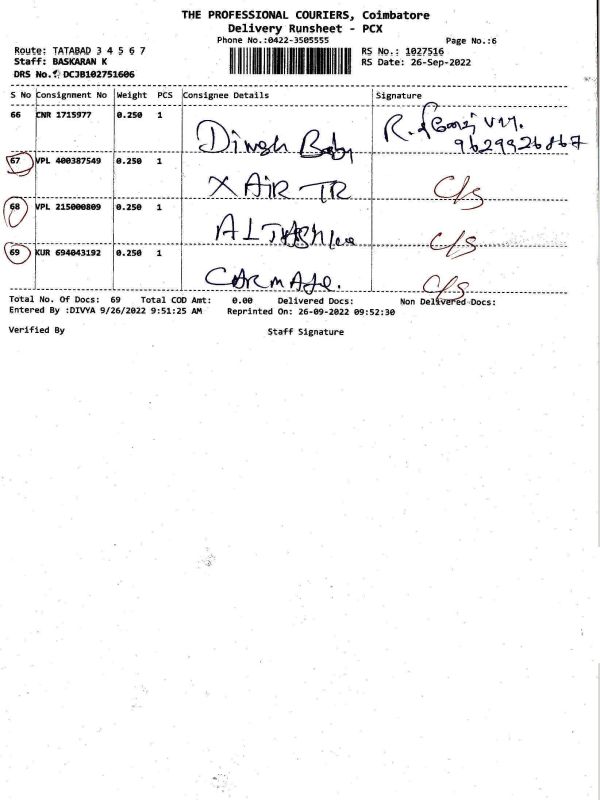 THE PROFESSIONAL COURIERS, Coimbatore
Delivery Runsheet - PCX
Phone No.:0422-3505555
Page No.:6
Route: TATABAD 3 4 5 6 7
RS No.: 1027516
Staff: BASKARAN K
RS Date: 26-Sep-2022
DRS No.: DCJB102751606
S No Consignment No Weight PCS Consignee Details Signature
66 CNR 1715977 0.250 1 Dinesh Baby R.
9629926867
67 VPL 400387549 0.250 1 X AIR TR C/S
68 VPL 215000809 0.250 1 C/S
69 KUR 694043192 0.250 1 C/S
Total No. Of Docs: 69 Total COD Amt: 0.00 Delivered Docs: Non Delivered Docs:
Entered By :DIVYA 9/26/2022 9:51:25 AM Reprinted On: 26-09-2022 09:52:30
Verified By Staff Signature